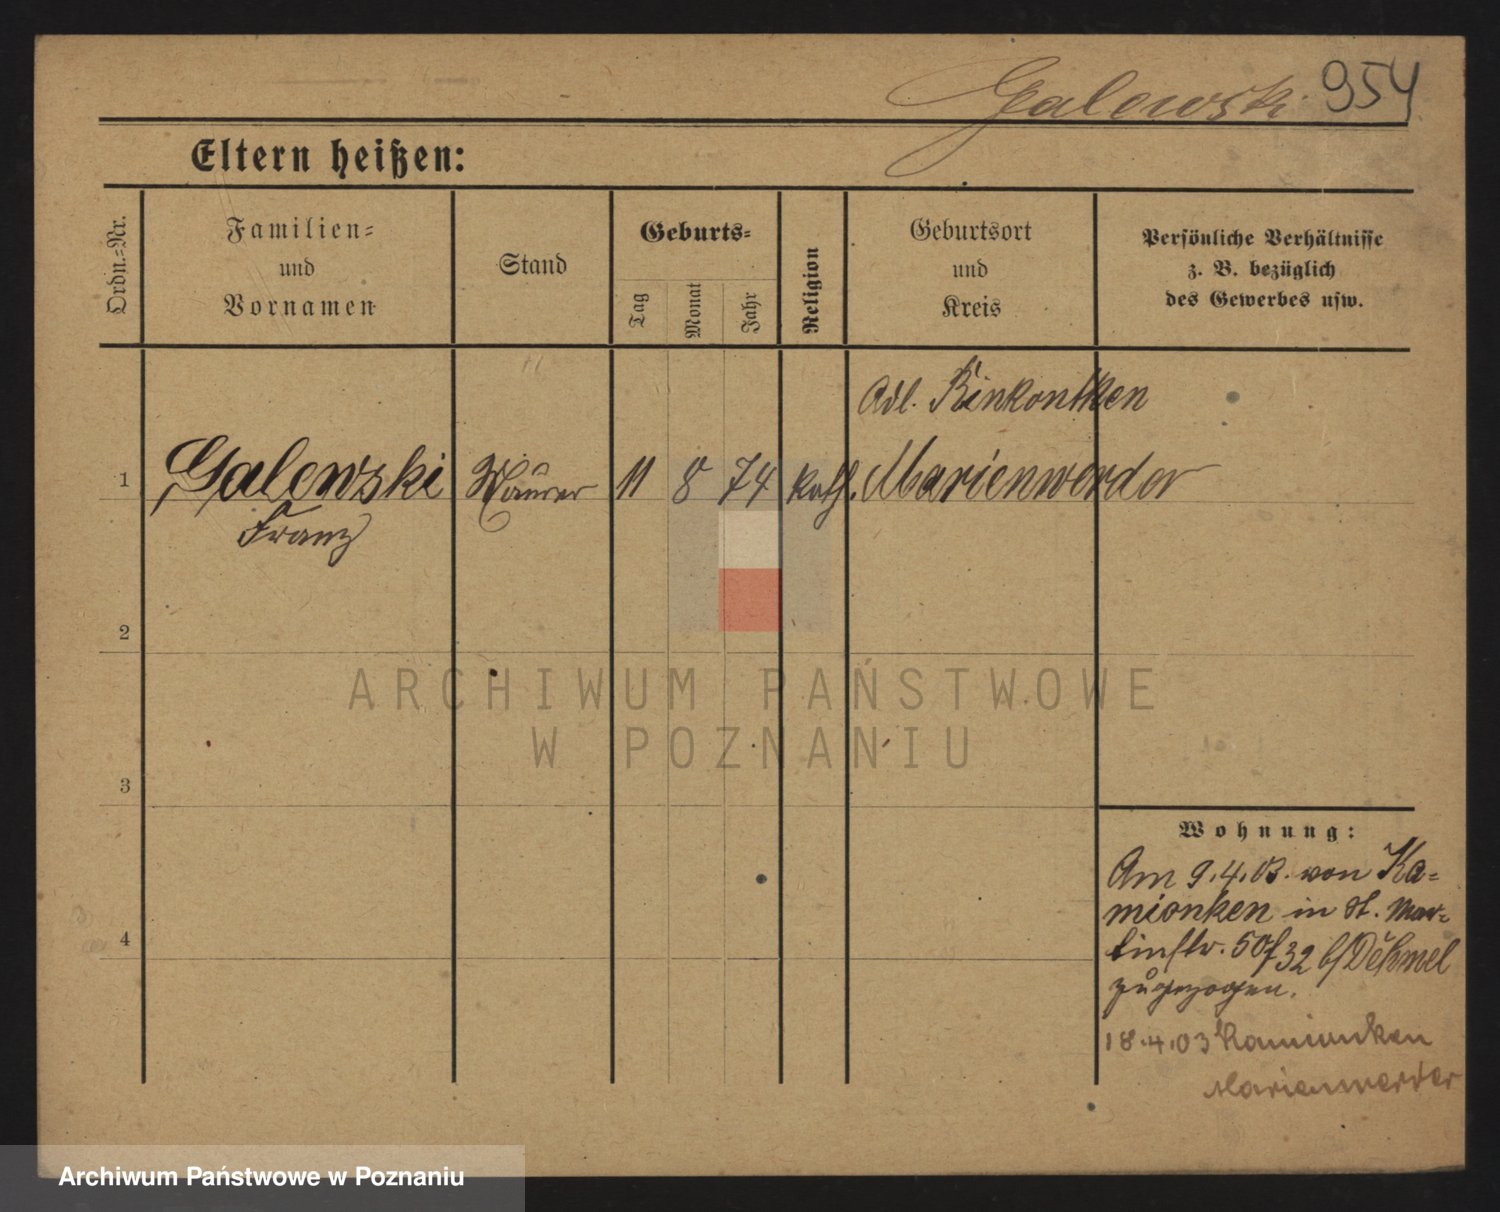 Galewski 954
Eltern heißen:
Ordn.-Nr.
Familien-
und
Vornamen
Stand
Geburts-
Tag
Monat
Jahr
Religion
Geburtsort
und
Kreis
Persönliche Verhältnisse
z. B. bezüglich
des Gewerbes usw.
Adl. Rinkontken
1 Galewski Maurer 11 8 74 kath. Marienwerder
Franz
2
ARCHIWUM PAŃSTWOWE
W POZNANIU
3
Wohnung:
Am 9.4.03. von Ka-
mionken in St. Mar-
tinstr. 50/32 b/Dehmel
zugezogen.
4
18.4.03 Kamionken
Marienwerder
Archiwum Państwowe w Poznaniu